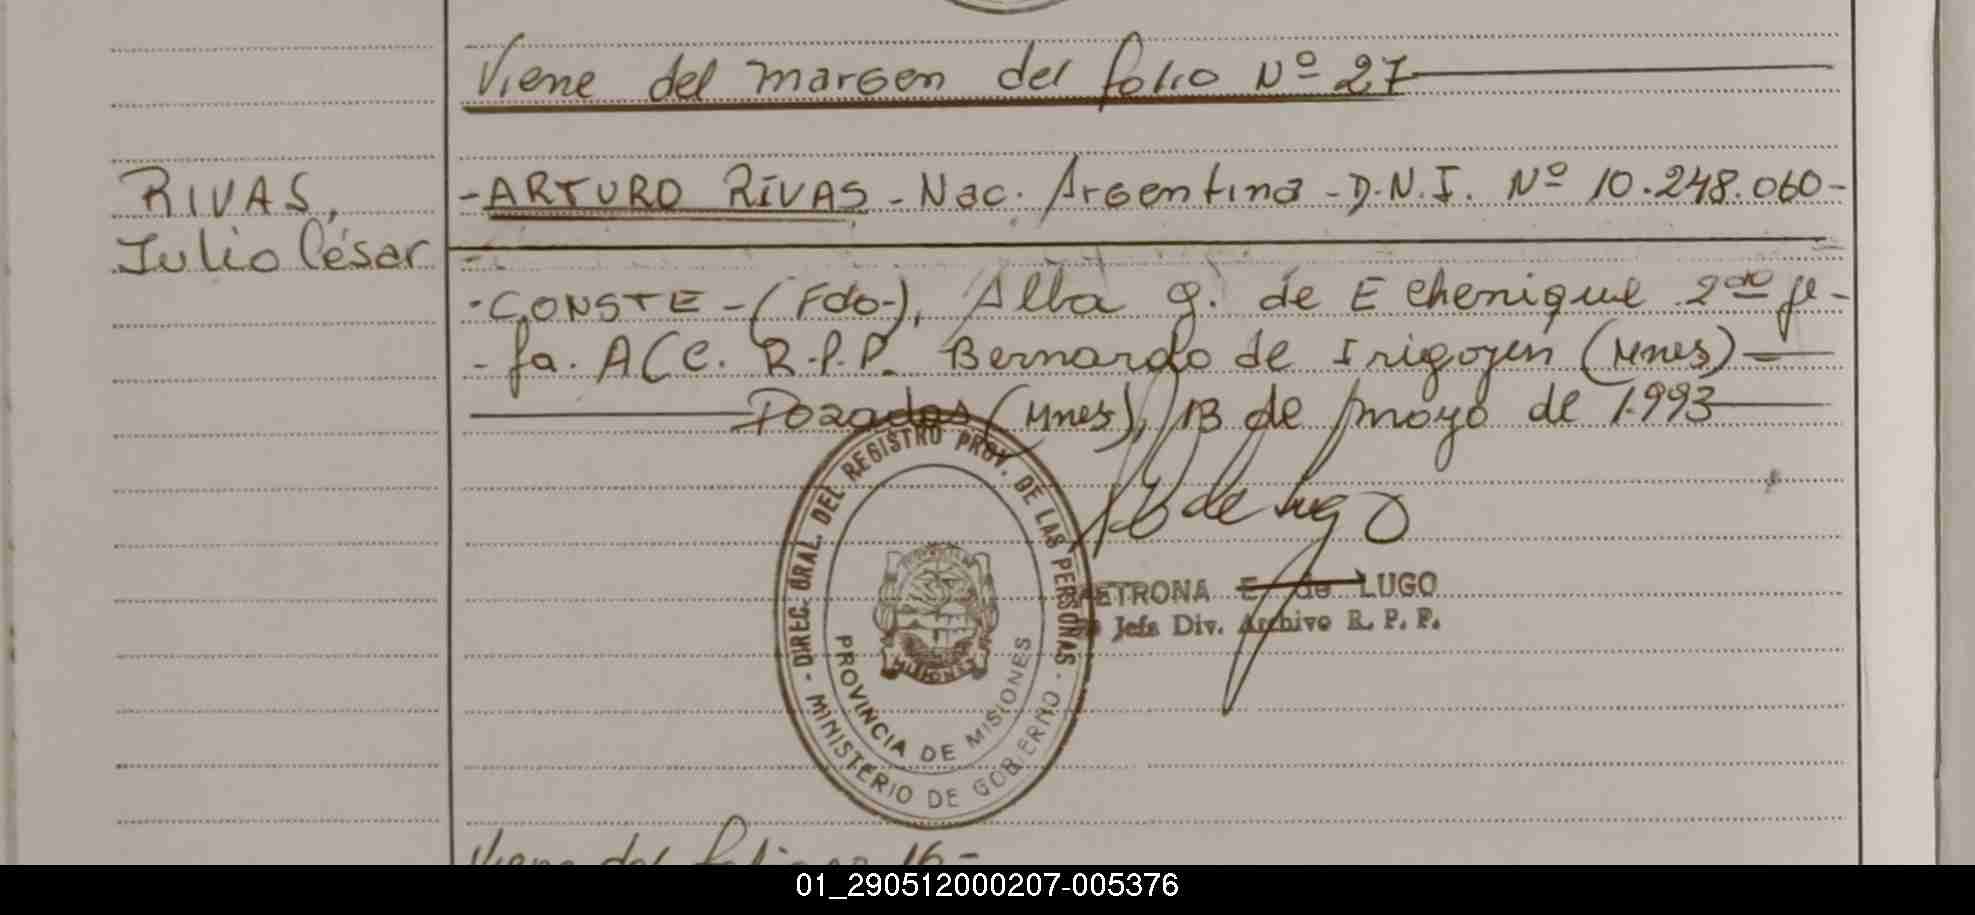 Viene del margen del folio Nº 27
RIVAS,
Julio César
- ARTURO RIVAS - Nac. Argentina - D.N.I. Nº 10.248.060 -
- CONSTE - (Fdo-), Alba g. de Echenique 2do je-
- fa. ACC. R.P.P. Bernardo de Irigoyen (Mnes)
Pozadas (Mnes), 13 de mayo de 1.993
de Lugo
PETRONA E. de LUGO
Jefa Div. Archivo R. P. P.
DIREC. GRAL. DEL REGISTRO PROV. DE LAS PERSONAS - MINISTERIO DE GOBIERNO -
PROVINCIA DE MISIONES
MISIONES
Viene del folio no 16 -
01_290512000207-005376